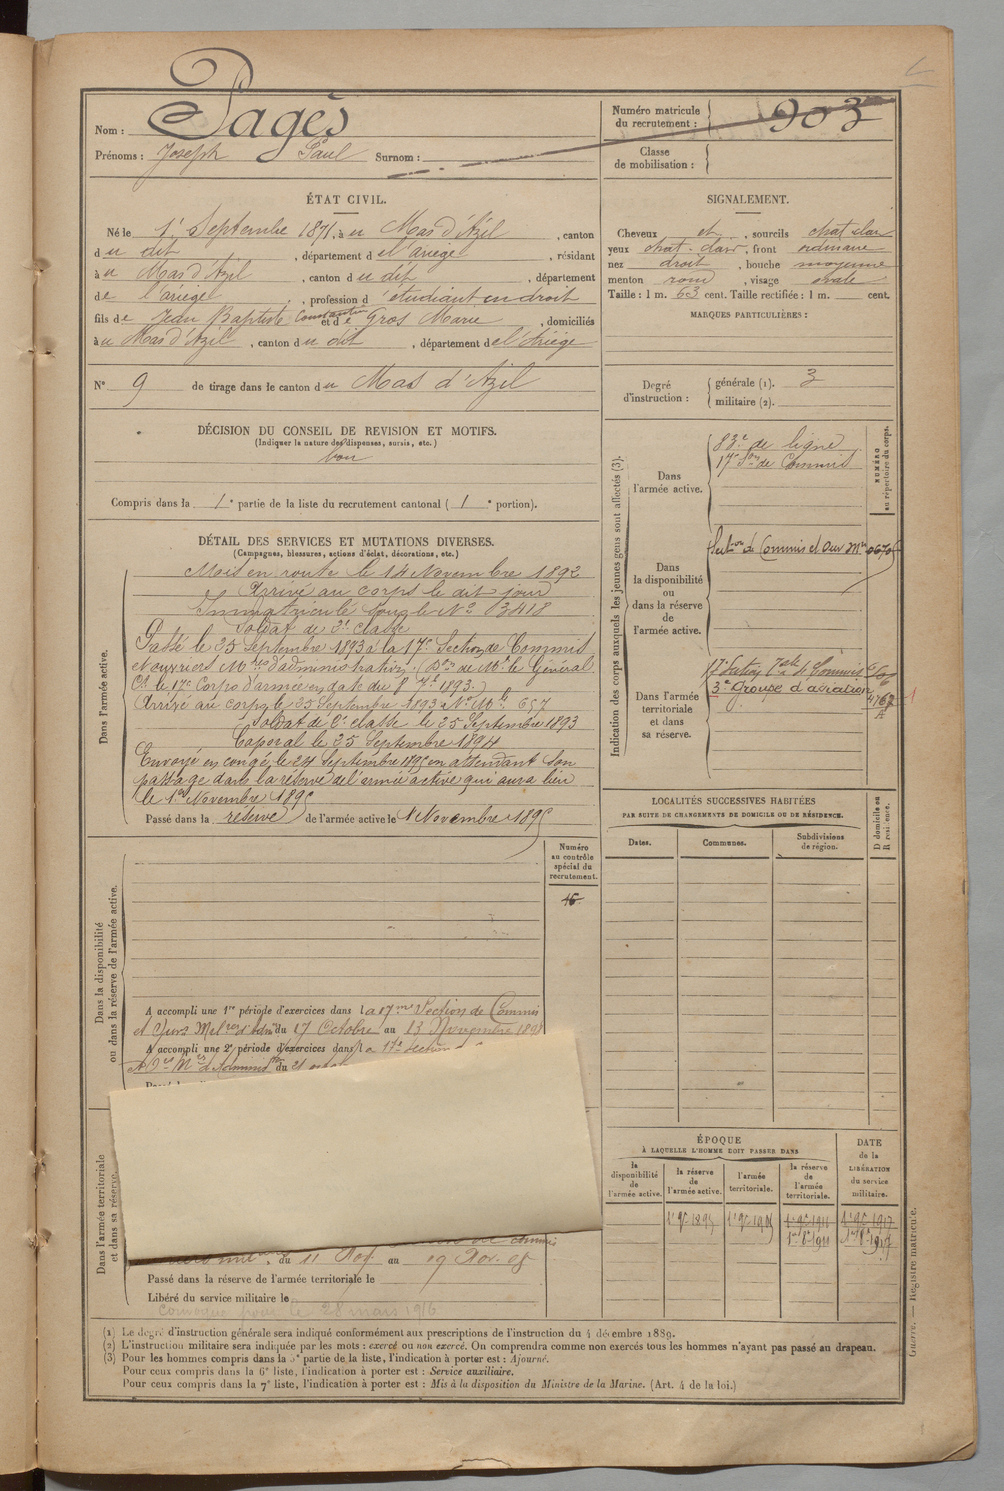 Nom : Pagès
Prénoms : Joseph Paul Surnom :
Numéro matricule du recrutement : 903
Classe de mobilisation :
ÉTAT CIVIL.
Né le 1r Septembre 1871, à u Mas d'Azil, canton
du dit, département d e l'ariège, résidant
à u Mas d'Azil, canton du dit, département
de l'ariège, profession d'étudiant en droit
fils de Jean Baptiste Constantin et de Gros Marie, domiciliés
à u Mas d'Azil, canton du dit, département de l'Ariège
N° 9 de tirage dans le canton du Mas d'Azil
SIGNALEMENT.
Cheveux et, sourcils chat clair
yeux chat. clair, front ordinaire
nez droit, bouche moyenne
menton rond, visage ovale
Taille : 1 m. 63 cent. Taille rectifiée : 1 m. cent.
MARQUES PARTICULIÈRES :
Degré d'instruction : générale (1). 3
militaire (2).
DÉCISION DU CONSEIL DE REVISION ET MOTIFS.
(Indiquer la nature des dispenses, sursis, etc.)
bon
Compris dans la 1e partie de la liste du recrutement cantonal (1e portion).
DÉTAIL DES SERVICES ET MUTATIONS DIVERSES.
(Campagnes, blessures, actions d'éclat, décorations, etc.)
Dans l'armée active.
Mis en route le 14 Novembre 1892
Arrivé au corps le dit jour
Immatriculé sous le No 3418
Soldat de 2e classe
Passé le 25 Septembre 1893 à la 17e Section de Commis
et ouvriers Mres d'administration (Don de Mr le Général
Ct le 17e Corps d'armée en date du 8 7bre 1893.)
Arrivé au corps le 25 Septembre 1893 No Mle 657
Soldat de 2e classe le 25 Septembre 1893
Caporal le 25 Septembre 1894
Envoyé en congé le 24 Septembre 1895 en attendant son
passage dans la réserve de l'armée active qui aura lieu
le 1er Novembre 1895
Passé dans la réserve de l'armée active le 1 Novembre 1895
Indication des corps auxquels les jeunes gens sont affectés (3).
NUMÉRO au répertoire du corps.
Dans l'armée active.
83e de ligne
17e Son de Commis
Dans la disponibilité ou dans la réserve de l'armée active.
Section de Commis et Ouv Mres
Dans l'armée territoriale et dans sa réserve.
17e Section tale de Commis
3e Groupe d'aviation
Dans la disponibilité ou dans la réserve de l'armée active.
Numéro au contrôle spécial du recrutement.
16
A accompli une 1re période d'exercices dans la 17me Section de Commis
et Ouvrs du 17 Octobre au 13 Novembre 1898
A accompli une 2e période d'exercices dans la 17e section
du 21
LOCALITÉS SUCCESSIVES HABITÉES
PAR SUITE DE CHANGEMENTS DE DOMICILE OU DE RÉSIDENCE.
Dates. Communes. Subdivisions de région. D domicile ou R résidence.
Dans l'armée territoriale et dans sa réserve.
du 11 Nov. au 19 Nov. 08
Passé dans la réserve de l'armée territoriale le
Libéré du service militaire le
convoqué pour le 28 mars 1916
ÉPOQUE
À LAQUELLE L'HOMME DOIT PASSER DANS
la disponibilité de l'armée active. la réserve de l'armée active. l'armée territoriale. la réserve de l'armée territoriale.
DATE de la LIBÉRATION du service militaire.
1r 9e 1895 1r 9e 1905 1r 9e 1911 1r 9e 1917
(1) Le degré d'instruction générale sera indiqué conformément aux prescriptions de l'instruction du 4 décembre 1889.
(2) L'instruction militaire sera indiquée par les mots : exercé ou non exercé. On comprendra comme non exercés tous les hommes n'ayant pas passé au drapeau.
(3) Pour les hommes compris dans la 5e partie de la liste, l'indication à porter est : Ajourné.
Pour ceux compris dans la 6e liste, l'indication à porter est : Service auxiliaire.
Pour ceux compris dans la 7e liste, l'indication à porter est : Mis à la disposition du Ministre de la Marine. (Art. 4 de la loi.)
Guerre. — Registre matricule.